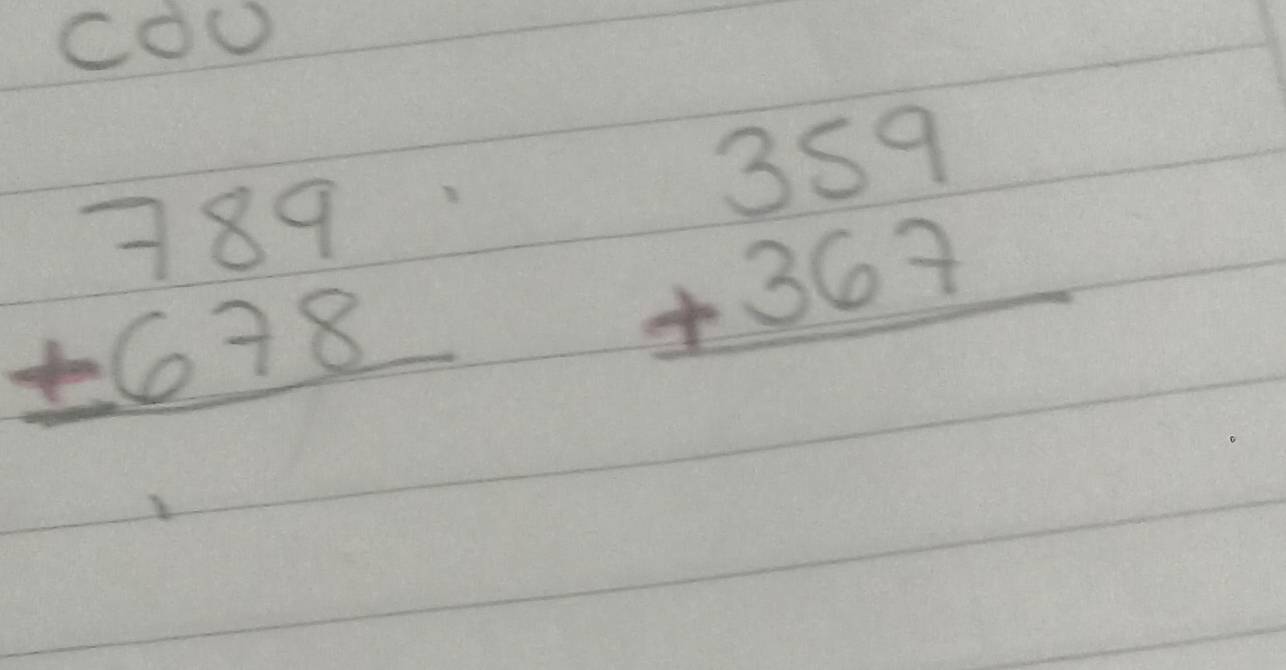 CdU
789
+678
359
+367